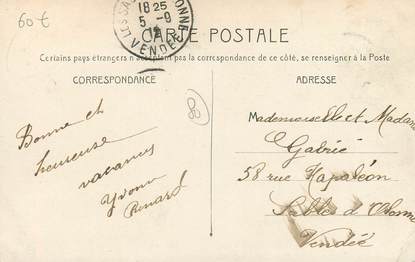 60 €
18 25
5 - 9
VENDÉE
CARTE POSTALE
Certains pays étrangers n'acceptent pas la correspondance de ce côté, se renseigner à la Poste
CORRESPONDANCE
ADRESSE
Bonne et
heureuse
vacances
Yvonne
Renard
Mademoiselle et Madame
Gabrié
58 rue Napoléon
Sables d'Olonne
Vendée